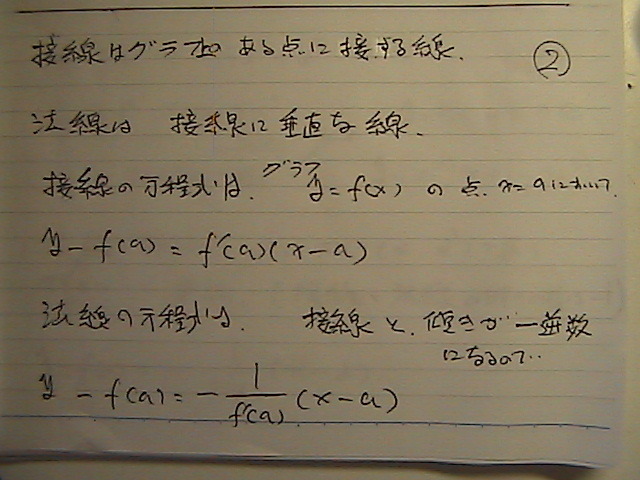 接線はグラフ上の ある点に接する線. ②
法線は 接線に垂直な線.
接線の方程式は. グラフ y=f(x) の点. x=aにおいて.
y-f(a)=f'(a)(x-a)
法線の方程式は. 接線と、傾きが -逆数
になるので..
y-f(a)=-\frac{1}{f'(a)}(x-a)